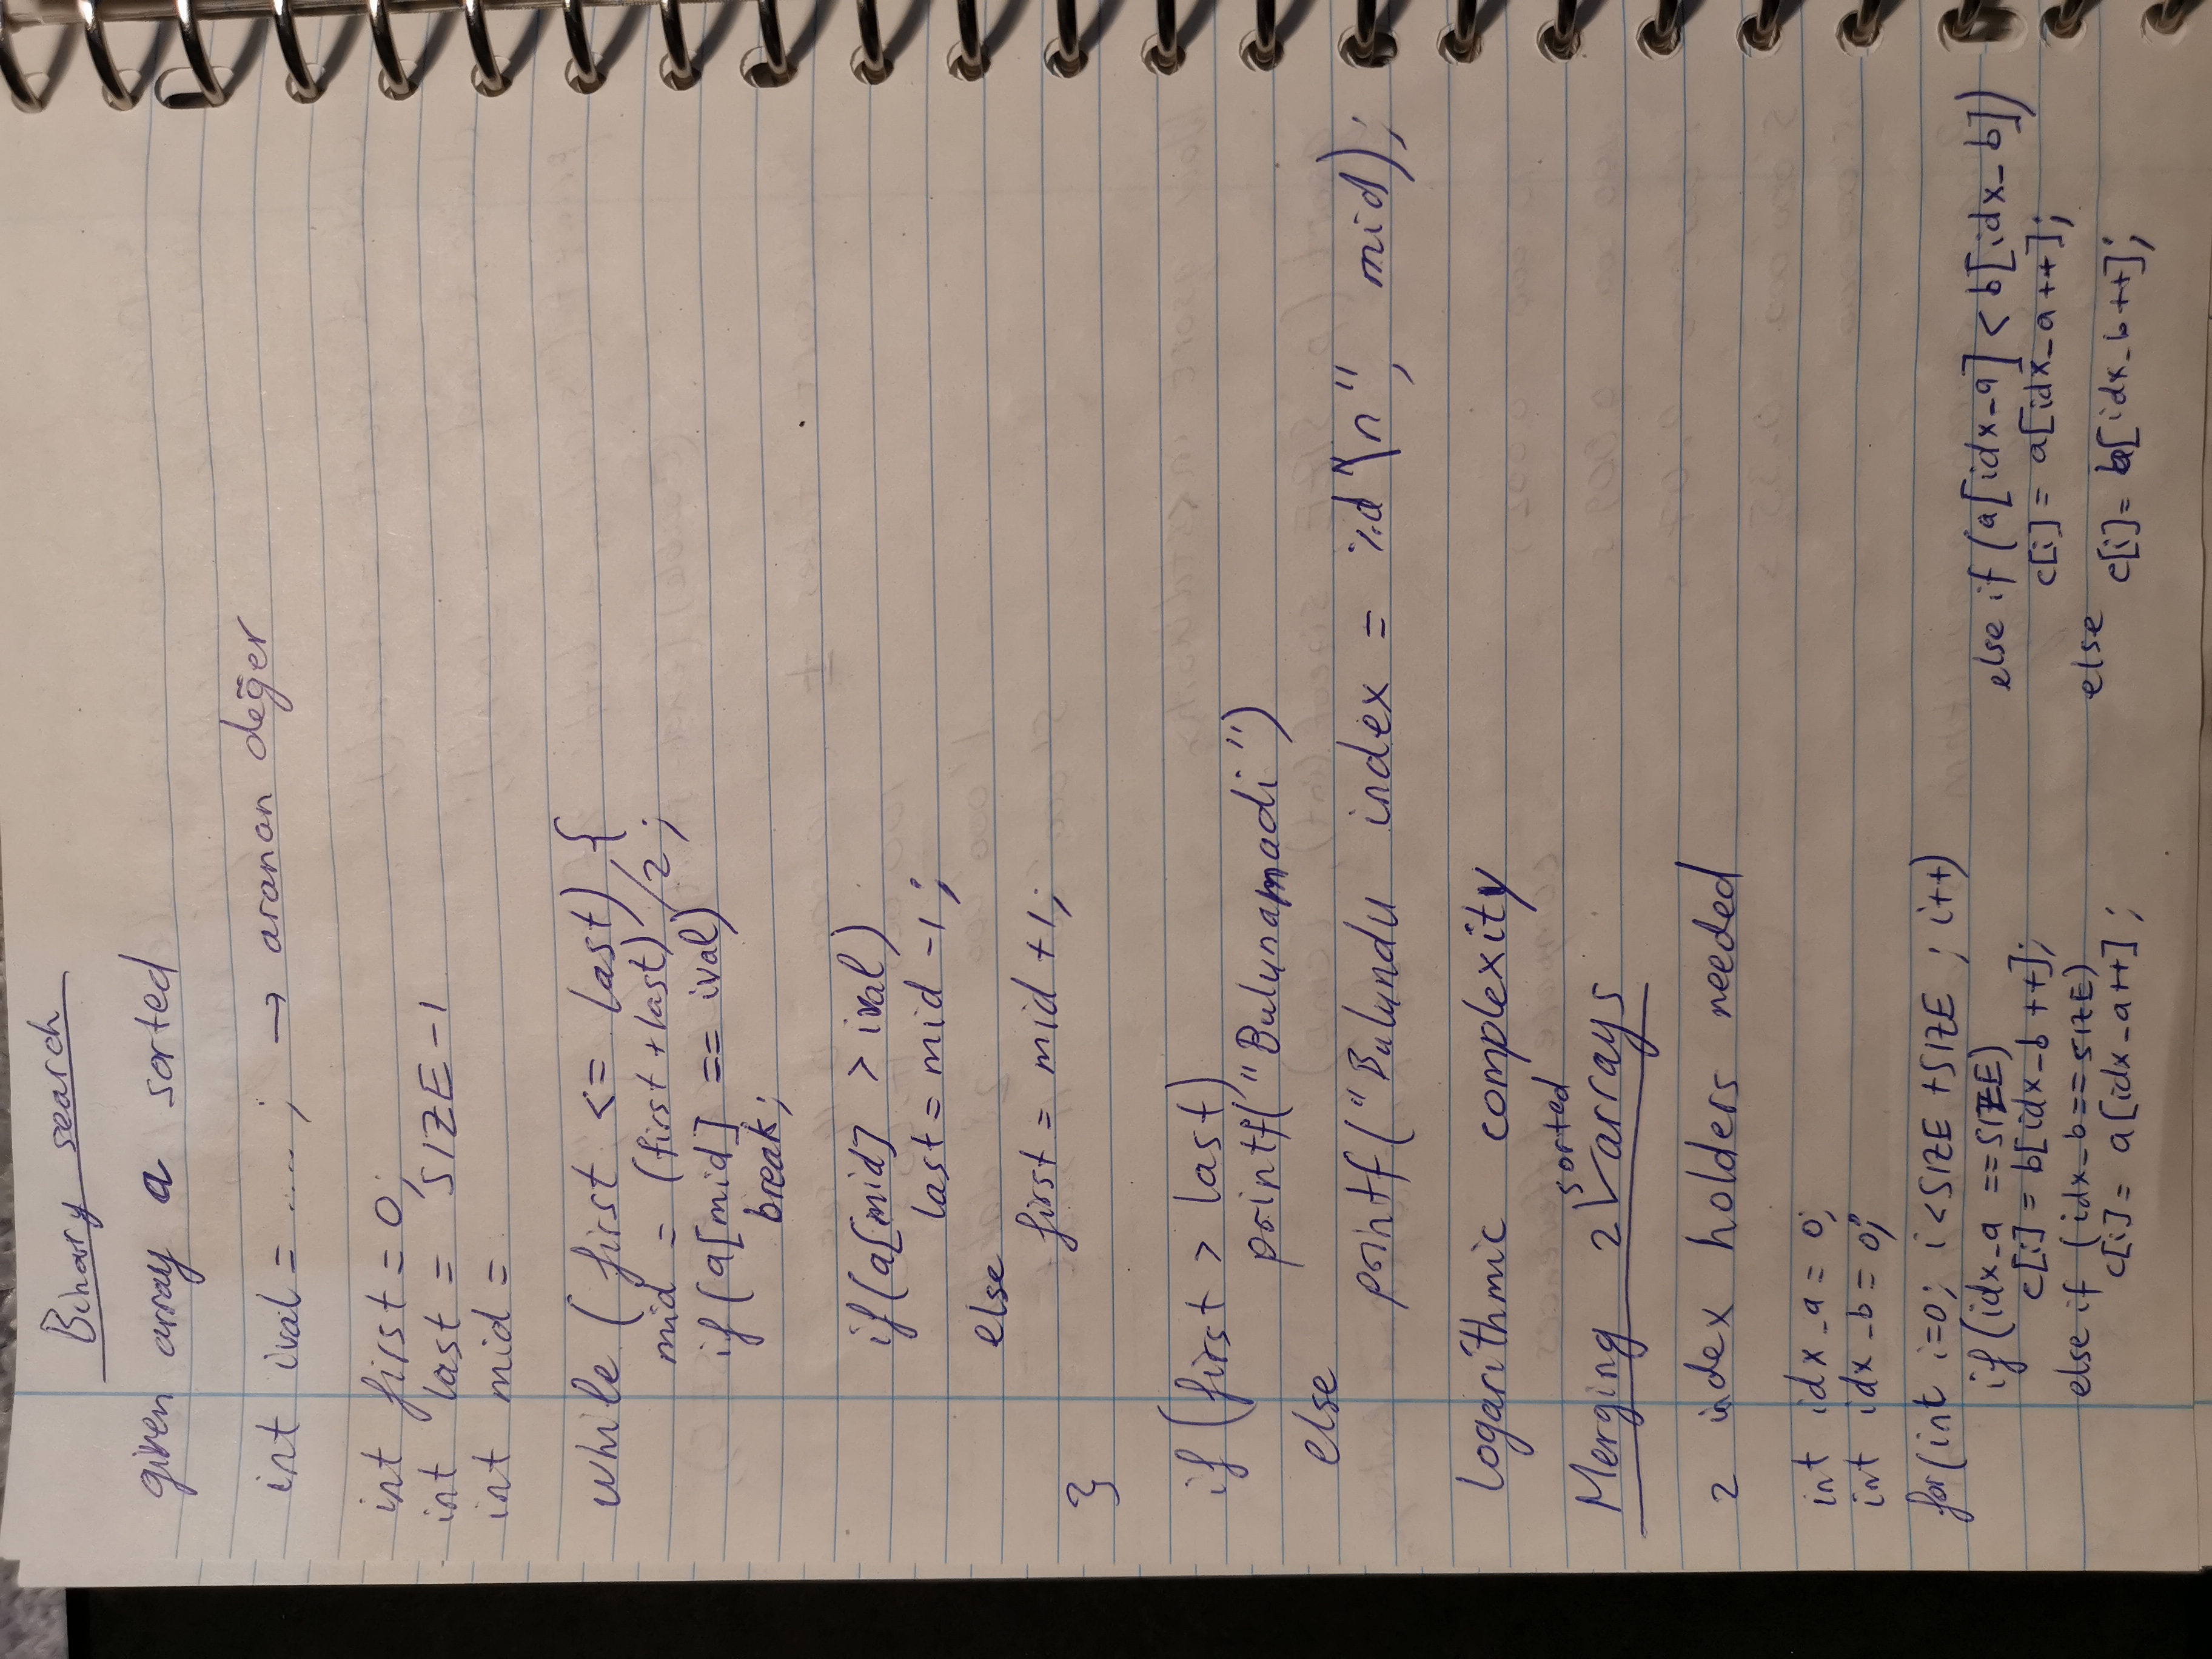 Binary search
given array a sorted
int ival = ..... ; → aranan değer
int first = 0;
int last = SIZE-1
int mid =
while (first <= last) {
mid = (first+last) /2;
if(a[mid] == ival)
break;
if(a[mid] > ival)
last = mid -1;
else
first = mid +1;
}
if (first > last)
printf("Bulunamadi")
else
printf("Bulundu index = %d"\n", mid);
Logarithmic complexity
Merging 2 sorted arrays
2 index holders needed
int idx_a = 0;
int idx_b = 0;
for(int i=0; i<SIZE +SIZE ; i++)
if (idx_a ==SIZE)
c[i] = b[idx_b ++];
else if (idx_b==SIZE)
c[i] = a[idx_a++];
else if (a[idx_a] < b[idx_b])
c[i] = a[idx_a++];
else
c[i] = b[idx_b++];